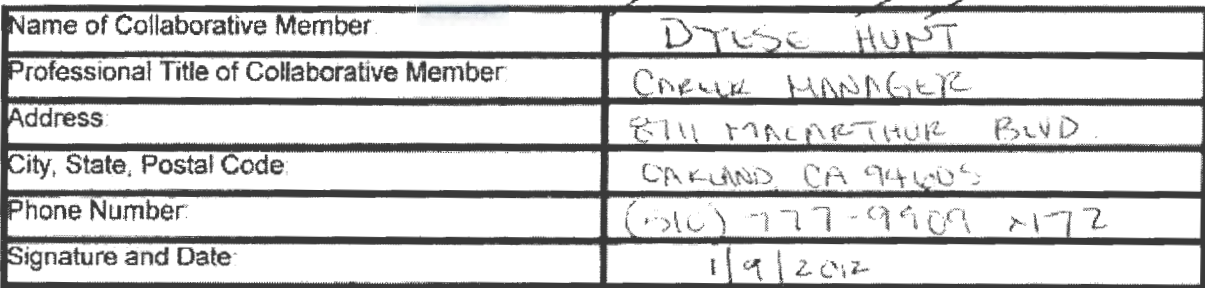 Name of Collaborative Member: DYESE HUNT
Professional Title of Collaborative Member: CAREER MANAGER
Address: 8711 MACARTHUR BLVD.
City, State, Postal Code: OAKLAND, CA 94605
Phone Number: (510) 777-9909 x172
Signature and Date: 1/9/2012